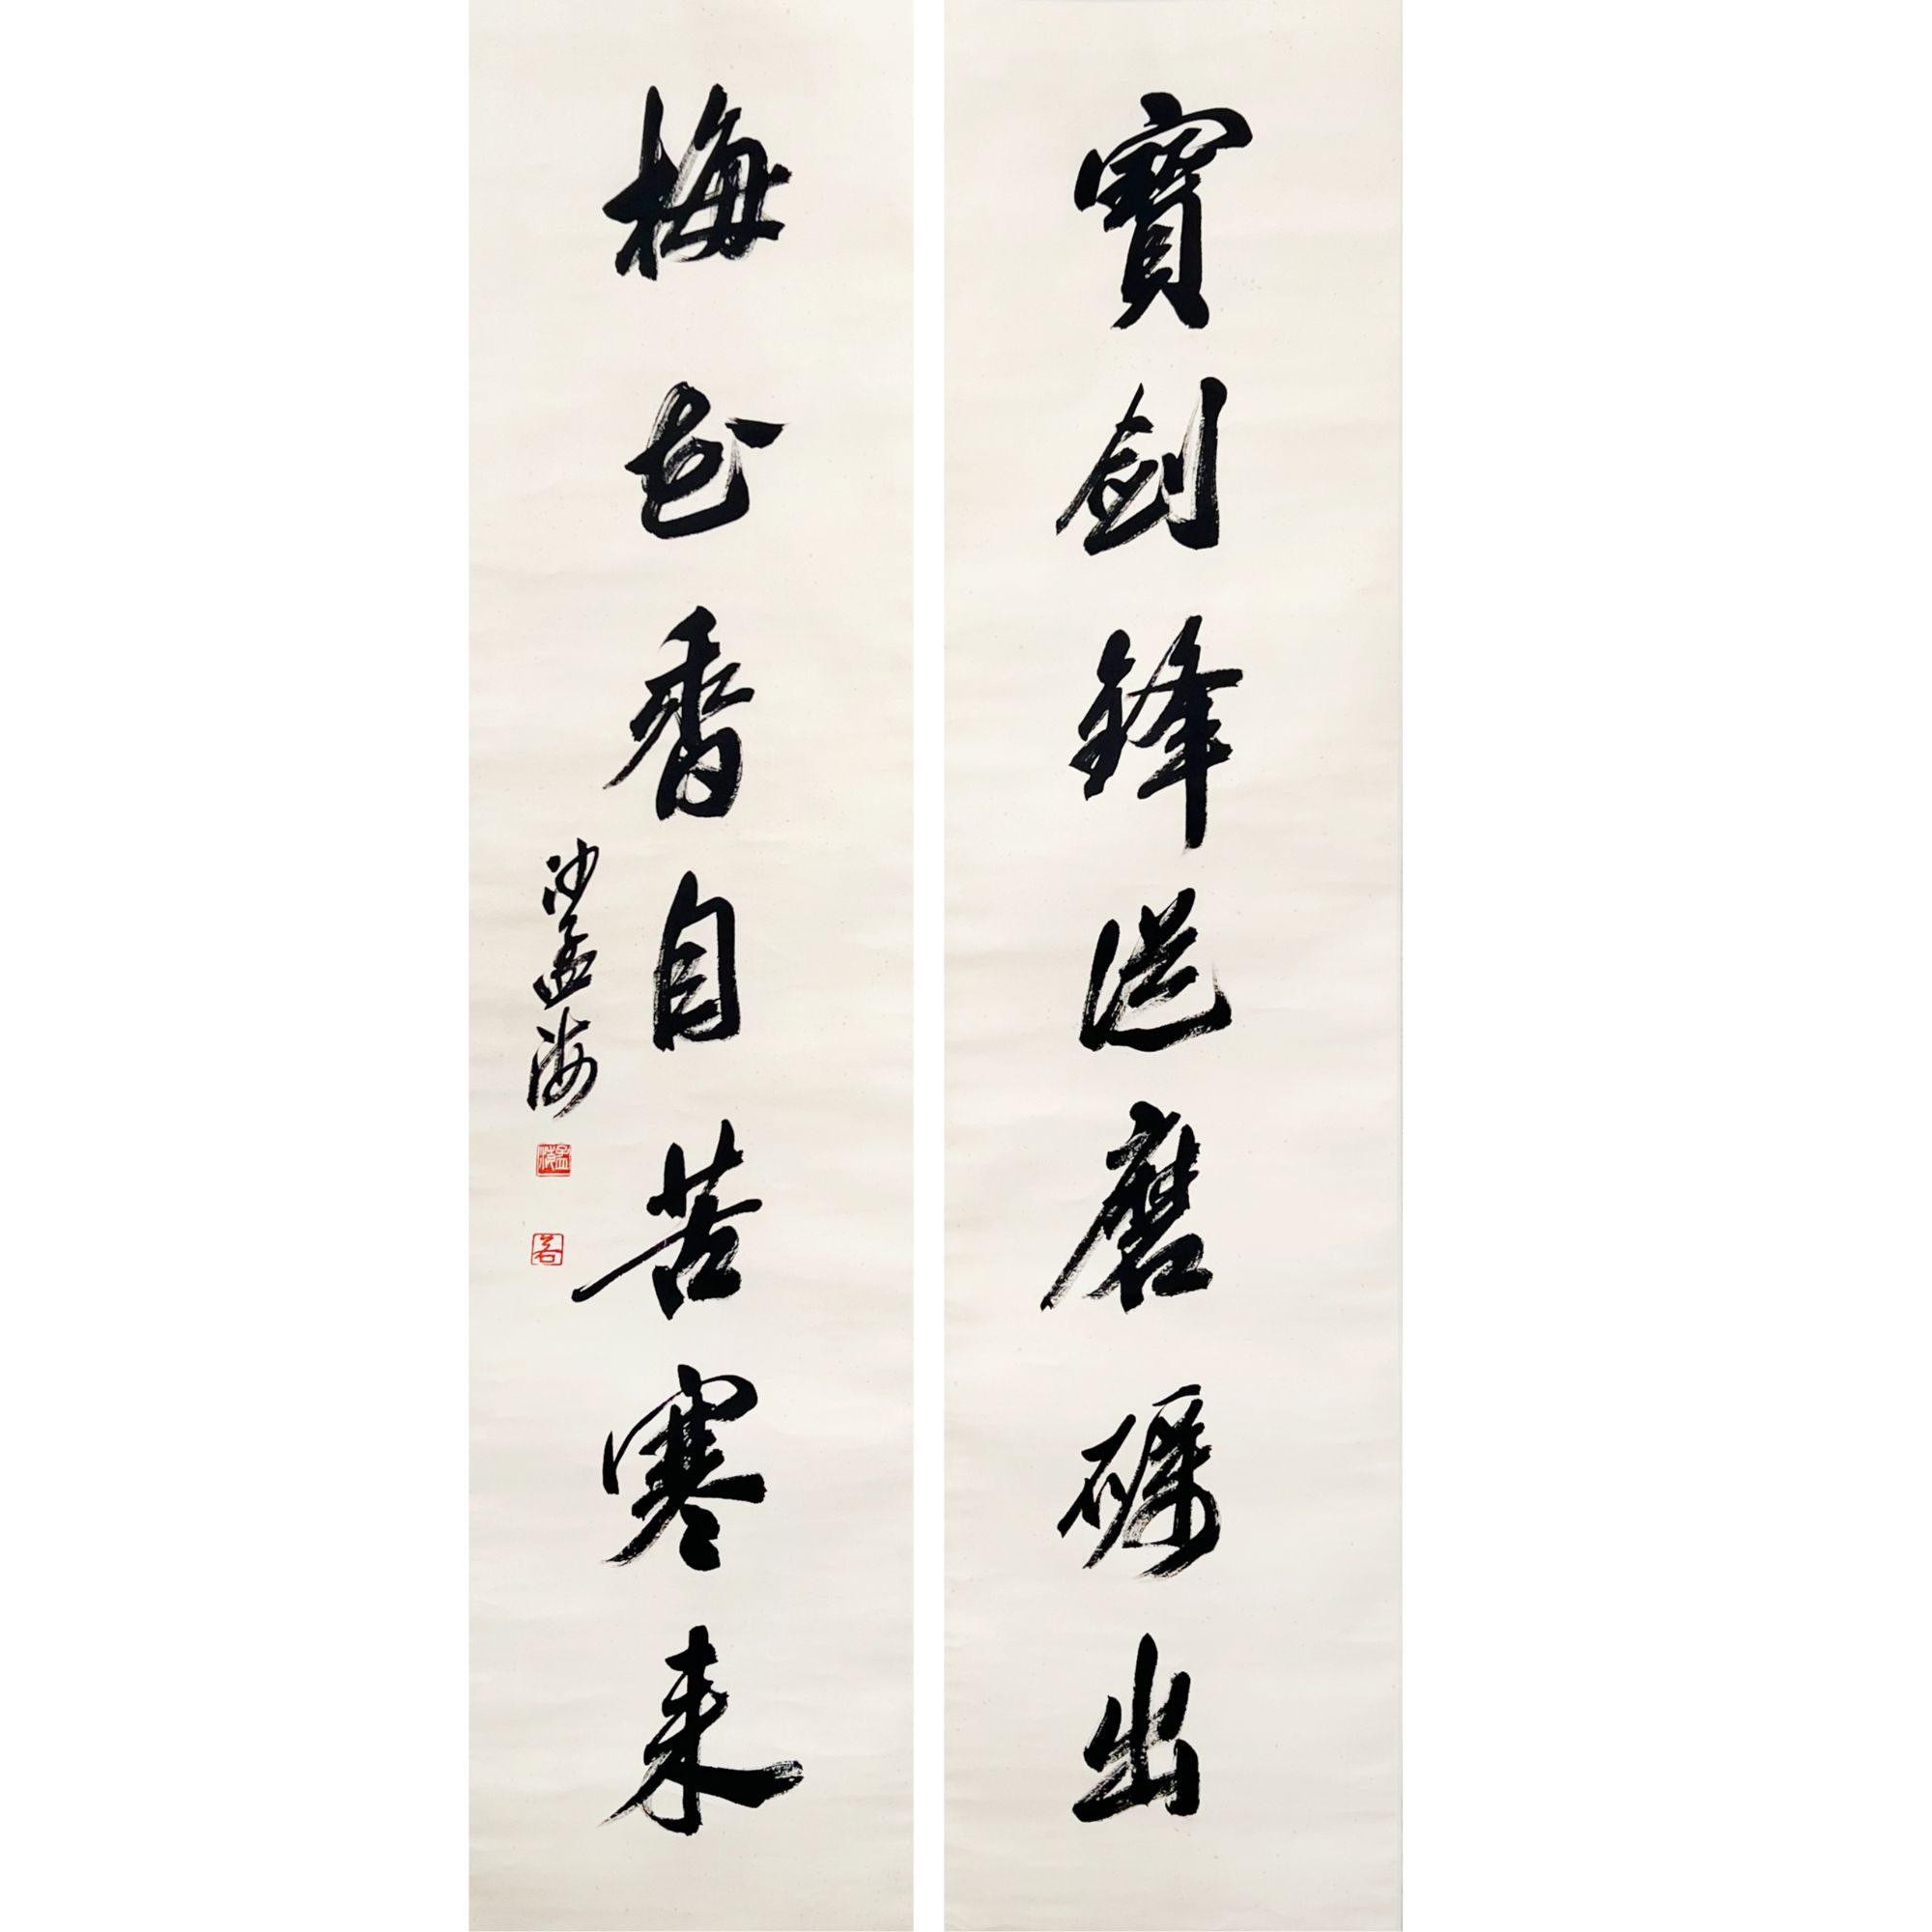 寶劍鋒從磨礪出
梅花香自苦寒來
沙孟海
孟海
若